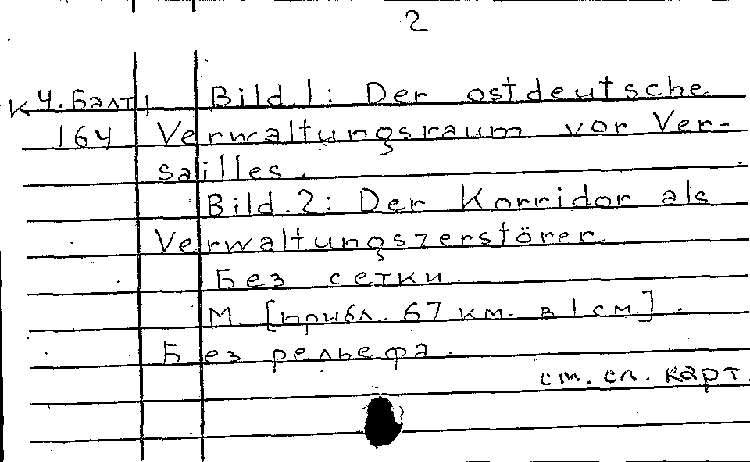 2
К Ч. Балт. Bild 1: Der ostdeutsche
164 Verwaltungsraum vor Ver-
sailles.
Bild 2: Der Korridor als
Verwaltungszerstörer.
Без сетки
М [прибл. 67 км. в 1 см].
Без рельефа.
см. сл. карт.